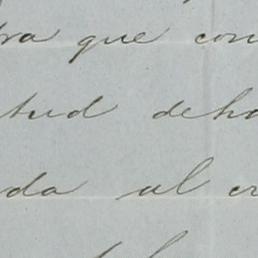 ra que con
tud deha
da al cr